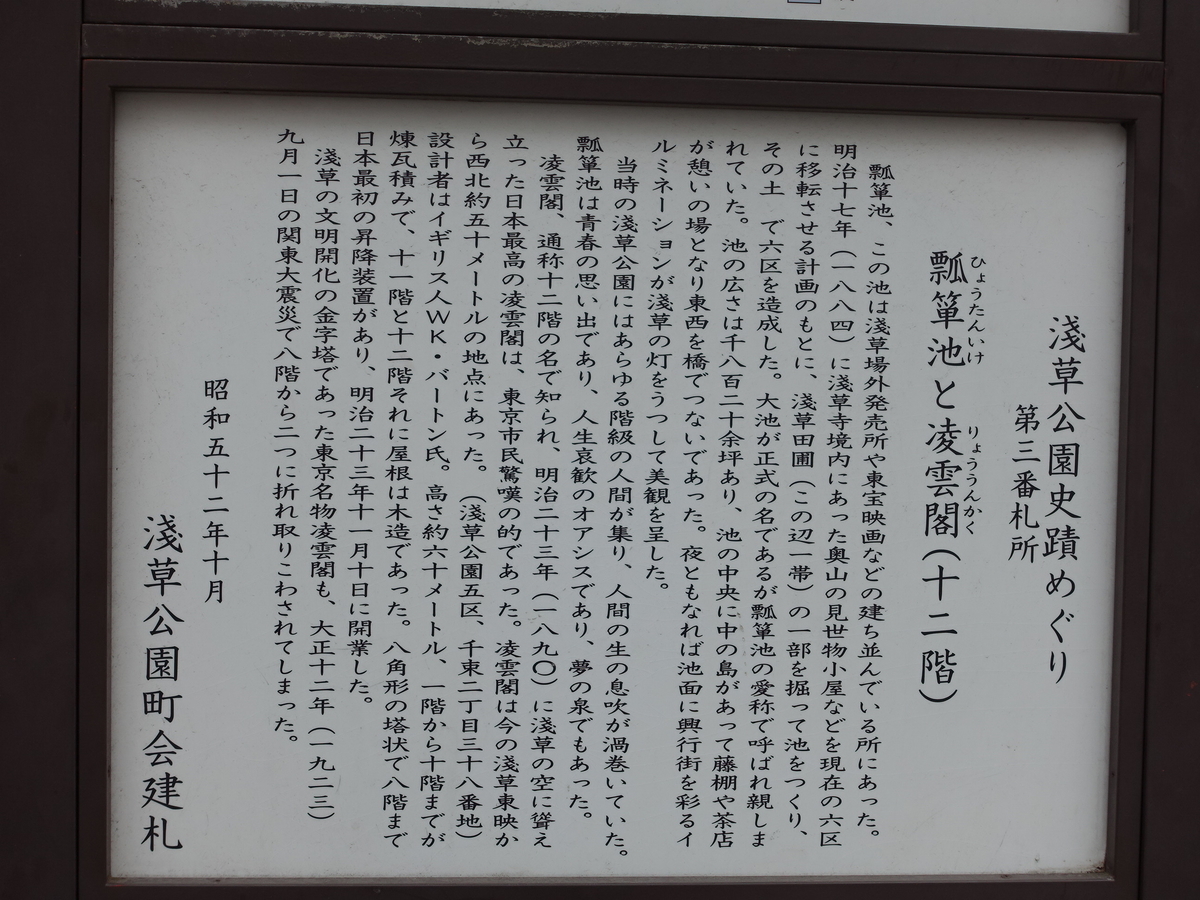 淺草公園史蹟めぐり
第三番札所
瓢箪池と凌雲閣(十二階)
ひょうたんいけ りょううんかく
瓢箪池、この池は淺草場外発売所や東宝映画などの建ち並んでいる所にあった。
明治十七年(一八八四)に淺草寺境内にあった奥山の見世物小屋などを現在の六区
に移転させる計画のもとに、淺草田圃(この辺一帯)の一部を掘って池をつくり、
その土 で六区を造成した。大池が正式の名であるが瓢箪池の愛称で呼ばれ親しま
れていた。池の広さは千八百二十余坪あり、池の中央に中の島があって藤棚や茶店
が憩いの場となり東西を橋でつないであった。夜ともなれば池面に興行街を彩るイ
ルミネーションが淺草の灯をうつして美観を呈した。
当時の淺草公園にはあらゆる階級の人間が集り、人間の生の息吹が渦巻いていた。
瓢箪池は青春の思い出であり、人生哀歓のオアシスであり、夢の泉でもあった。
凌雲閣、通称十二階の名で知られ、明治二十三年(一八九〇)に淺草の空に聳え
立った日本最高の凌雲閣は、東京市民驚嘆の的であった。凌雲閣は今の淺草東映か
ら西北約五十メートルの地点にあった。(淺草公園五区、千束二丁目三十八番地)
設計者はイギリス人WK・バートン氏。高さ約六十メートル、一階から十階までが
煉瓦積みで、十一階と十二階それに屋根は木造であった。八角形の塔状で八階まで
日本最初の昇降装置があり、明治二十三年十一月十日に開業した。
淺草の文明開化の金字塔であった東京名物凌雲閣も、大正十二年(一九二三)
九月一日の関東大震災で八階から二つに折れ取りこわされてしまった。
昭和五十二年十月
淺草公園町会建札